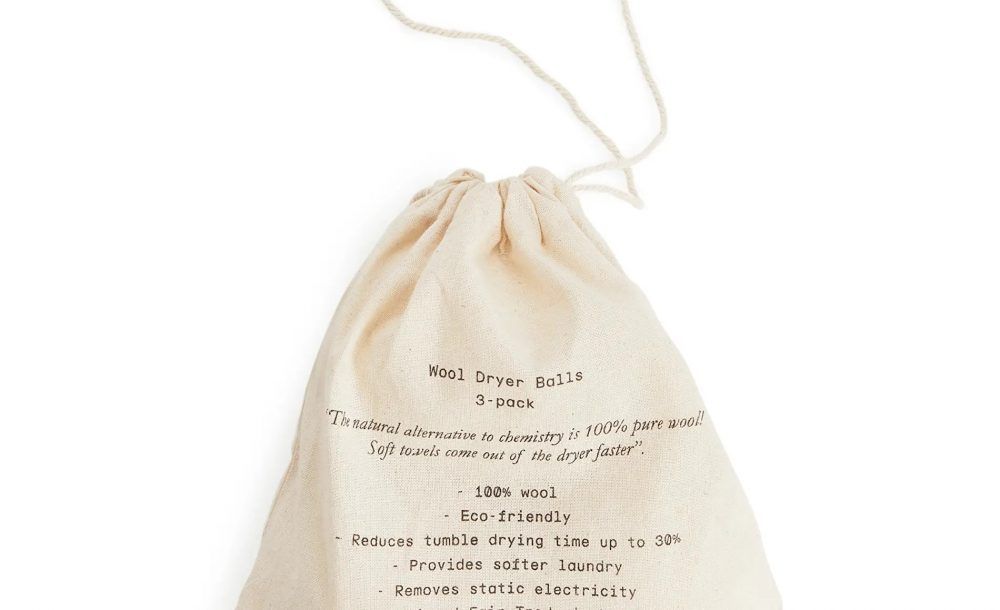 Wool Dryer Balls
3-pack
“The natural alternative to chemistry is 100% pure wool!
Soft towels come out of the dryer faster”.
- 100% wool
- Eco-friendly
- Reduces tumble drying time up to 30%
- Provides softer laundry
- Removes static electricity